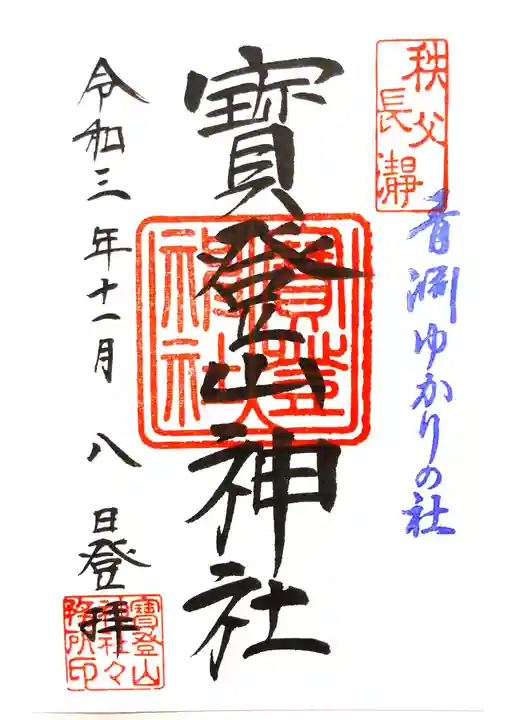 秩父
長瀞
青淵ゆかりの社
寳登山神社
寳登山
神社
令和三年十一月八日登拝
寳登山
神社々
務所印